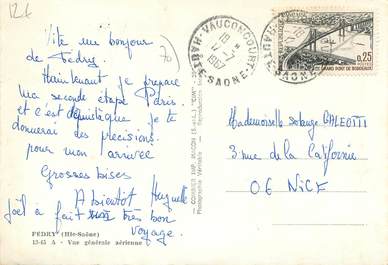 126
70
Vite un bonjour
de Fédry.
Maintenant je prepare
ma seconde étape Paris.
et c'est
donnerai des precisions
pour mon arrivée
Grosses bises
A bientôt Huguette
Joël a fait très bon
voyage.
FÉDRY (Hte-Saône)
13-45 A - Vue générale aérienne
COMBIER IMP. MACON (S.-et-L.) "CIM"
Photographie Véritable - Reproduction
VAUCONCOURT
18 H
17-7
1967
HAUTE-SAONE
0,25
GRAND PONT DE BORDEAUX
Mademoiselle Solange GALEOTTI
3 rue de la Californie
06 NICE